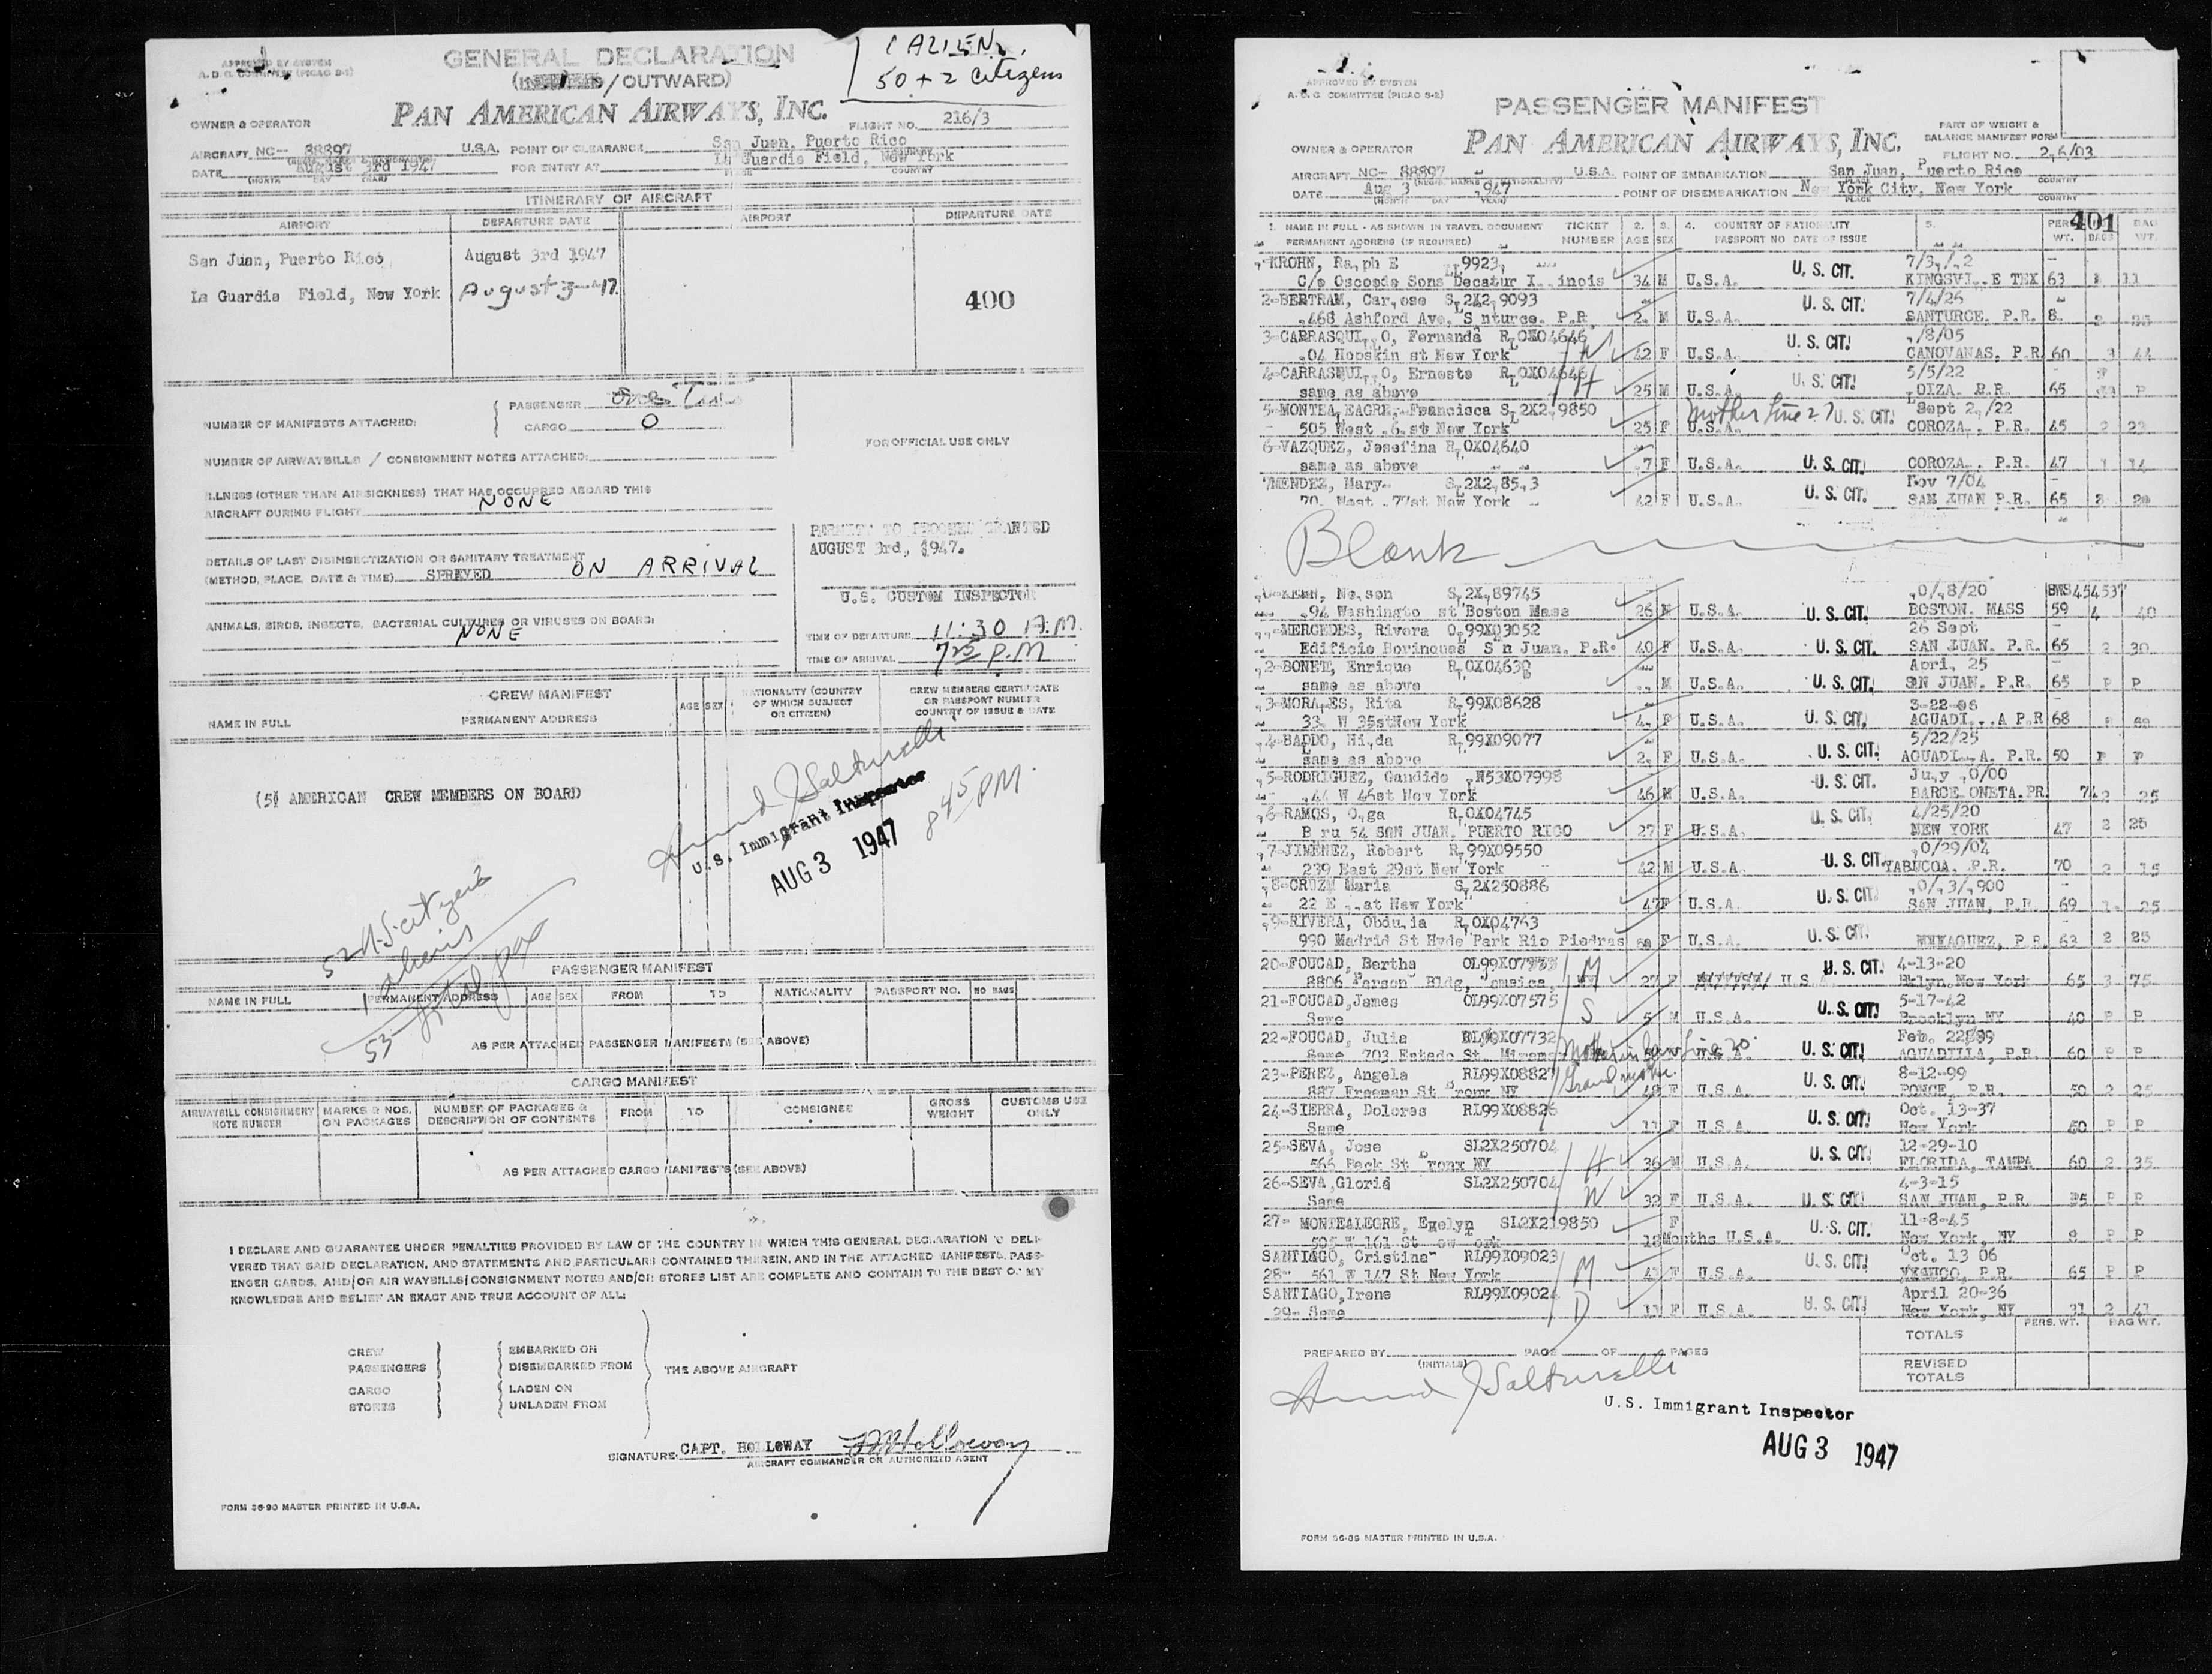 APPROVED BY SYSTEM
A. D. C. COMMITTEE (PICAO S-1)
GENERAL DECLARATION
/ OUTWARD)
1 ALIEN.
50 + 2 citizens
OWNER & OPERATOR
PAN AMERICAN AIRWAYS, INC.
FLIGHT NO. 216/3
AIRCRAFT NC- 88897 U.S.A. POINT OF CLEARANCE San Juan, Puerto Rico
DATE August 3rd 1947 FOR ENTRY AT La Guardia Field, New York
(MONTH DAY YEAR) PLACE COUNTRY
ITINERARY OF AIRCRAFT
AIRPORT DEPARTURE DATE AIRPORT DEPARTURE DATE
San Juan, Puerto Rico August 3rd 1947
La Guardia Field, New York August 3-47
400
NUMBER OF MANIFESTS ATTACHED: PASSENGER
CARGO 0
FOR OFFICIAL USE ONLY
NUMBER OF AIRWAYBILLS / CONSIGNMENT NOTES ATTACHED:
ILLNESS (OTHER THAN AIRSICKNESS) THAT HAS OCCURRED ABOARD THIS
AIRCRAFT DURING FLIGHT NONE
PERMIT TO PROCEED GRANTED
AUGUST 3rd, 1947.
DETAILS OF LAST DISINSECTIZATION OR SANITARY TREATMENT
(METHOD, PLACE, DATE & TIME) SPRAYED ON ARRIVAL
U.S. CUSTOM INSPECTOR
ANIMALS, BIRDS, INSECTS, BACTERIAL CULTURES OR VIRUSES ON BOARD:
NONE
TIME OF DEPARTURE 11:30 A.M.
TIME OF ARRIVAL 7 25 P.M
CREW MANIFEST
NAME IN FULL PERMANENT ADDRESS AGE SEX NATIONALITY (COUNTRY
OF WHICH SUBJECT
OR CITIZEN) CREW MEMBERS CERTIFICATE
OR PASSPORT NUMBER
COUNTRY OF ISSUE & DATE
(5) AMERICAN CREW MEMBERS ON BOARD
U.S. Immigrant Inspector
AUG 3 1947
8 45 PM.
52 U.S. citizens
1 aliens
53 total pax
PASSENGER MANIFEST
NAME IN FULL PERMANENT ADDRESS AGE SEX FROM TO NATIONALITY PASSPORT NO. NO BAGS
AS PER ATTACHED PASSENGER MANIFESTS (SEE ABOVE)
CARGO MANIFEST
AIRWAYBILL CONSIGNMENT
NOTE NUMBER MARKS & NOS.
ON PACKAGES NUMBER OF PACKAGES &
DESCRIPTION OF CONTENTS FROM TO CONSIGNEE GROSS
WEIGHT CUSTOMS USE
ONLY
AS PER ATTACHED CARGO MANIFESTS (SEE ABOVE)
I DECLARE AND GUARANTEE UNDER PENALTIES PROVIDED BY LAW OF THE COUNTRY IN WHICH THIS GENERAL DECLARATION IS DELI-
VERED THAT SAID DECLARATION, AND STATEMENTS AND PARTICULARS CONTAINED THEREIN, AND IN THE ATTACHED MANIFESTS, PASS-
ENGER CARDS, AND/OR AIR WAYBILLS/CONSIGNMENT NOTES AND/OR STORES LIST ARE COMPLETE AND CONTAIN TO THE BEST OF MY
KNOWLEDGE AND BELIEF AN EXACT AND TRUE ACCOUNT OF ALL:
CREW EMBARKED ON
PASSENGERS DISEMBARKED FROM THE ABOVE AIRCRAFT
CARGO LADEN ON
STORES UNLADEN FROM
SIGNATURE CAPT. HOLLOWAY
AIRCRAFT COMMANDER OR AUTHORIZED AGENT
FORM 36-90 MASTER PRINTED IN U.S.A.
APPROVED BY SYSTEM
A. D. C. COMMITTEE (PICAO S-2)
PASSENGER MANIFEST
PART OF WEIGHT &
BALANCE MANIFEST FORM
OWNER & OPERATOR
PAN AMERICAN AIRWAYS, INC.
FLIGHT NO. 2,6/03
AIRCRAFT NC- 88897 U.S.A. POINT OF EMBARKATION San Juan, Puerto Rico
DATE Aug 3 ,947 POINT OF DISEMBARKATION New York City, New York
(MONTH DAY YEAR) PLACE COUNTRY
401
1. NAME IN FULL - AS SHOWN IN TRAVEL DOCUMENT TICKET 2. 3. 4. COUNTRY OF NATIONALITY 5. PERS BAG
PERMANENT ADDRESS (IF REQUIRED) NUMBER AGE SEX PASSPORT NO DATE OF ISSUE WT. BAGS WT.
,-KROHN, Ra,ph E ,9923, 7/3,/,2
C/o Oscoede Sons Decatur I,,inois 34 M U.S.A. U. S. CIT. KINGSVI,,E TEX 63 11
2-BERTRAM, Car,ose S,2X2,9093 7/4/26
,468 Ashford Ave. S nturce. P.R. 2, M U.S.A. U. S. CIT. SANTURCE. P.R. 8,
3-CARRASQUI,,O, Fernanda R,0X04646 ,/8/05
,04 Hopskin st New York W 42 F U.S.A. U. S. CIT. CANOVANAS. P.R. 60 44
4-CARRASQUI,,O, Ernesto R,0X04646 5/5/22
same as above H 25 M U.S.A. U. S. CIT. ,OIZA. P.R. 65 P
5-MONTEA,EAGRE, Francisca S,2X2,9850 Mother line 27 Sept 2,/22
505 West ,6, st New York 25 F U.S.A. U. S. CIT. COROZA,. P.R. 45 2 22
6-VAZQUEZ, Josefina R,0X04640
same as above ,7 F U.S.A. U. S. CIT. COROZA,. P.R. 47 1 14
7MENDEZ, Mary S,2X2,85,3 Nov 7/04
70, West ,77st New York 42 F U.S.A. U. S. CIT. SAN JUAN P.R. 65
Blank
Ne,son S,2X,89745 ,0/,8/20
,94 Washingto st Boston Mass 26 M U.S.A. U. S. CIT. BOSTON. MASS 59 4 40
,,-MERCEDES, Rivera 0,99X03052 26 Sept
Edificio Borinques S n Juan. P.R. 40 F U.S.A. U. S. CIT. SAN JUAN. P.R. 65 2 30
,2-BONET, Enrique R,0X04639 Apri, 25
same as above ,, M U.S.A. U. S. CIT. SAN JUAN. P.R. 65 P P
,3-MORA,ES, Rita R,99X08628 3-22-06
33, W 35stNew York 4, F U.S.A. U. S. CIT. AGUADI,,A P.R 68
,4-BADDO, Hi,da R,99X09077 5/22/25
same as above 2, F U.S.A. U. S. CIT. AGUADI,,A. P.R. 50 P P
,5-RODRIGUEZ, Candido ,N53X07998 Ju,y ,0/00
,44 W 46st New York 46 M U.S.A. U. S. CIT. BARCE,ONETA.PR. 74 2 25
,6-RAMOS, O,ga R,0X04745 4/25/20
B ru 54 SAN JUAN. PUERTO RICO 27 F U.S.A. U. S. CIT. NEW YORK 47 2 25
,7-JIMENEZ, Robert R,99X09550 ,0/29/04
239 East 29st New York 42 M U.S.A. U. S. CIT. YABUCOA. P.R. 70 2 15
,8-CRUZ, Maria S,2X250886 ,0/,3/,900
22 E ,,at New York 47F U.S.A. U. S. CIT. SAN JUAN, P.R. 69 1 25
,9-RIVERA, Obdu,ia R,0X04763
990 Madrid St Hyde Park Rio Piedras F U.S.A. U. S. CIT. MAYAGUEZ, P.R. 63 2 25
20-FOUCAD, Bertha M 4-13-20
8806 Parson Bldg, Jamaica, NY 27 F U. S. CIT. Bklyn, New York 65 3 75
21-FOUCAD, James OL99X07575 S 5-17-42
Same 5 M U.S.A. U. S. CIT. Brooklyn NY 40 P P
22-FOUCAD, Julia Mother in law line 20. Feb. 22 99
Same 703 Estado St. U. S. CIT. AGUADILLA, P.R. 60 P P
23-PEREZ, Angela RL99X08827 Grandmother 8-12-99
887 Freeman St Bronx NY 48 F U.S.A. U. S. CIT. PONCE, P.R. 50 2 25
24-SIERRA, Dolores RL99X08826 Oct. 13-37
Same 11 F U.S.A. U. S. CIT. New York 60 P P
25-SEVA, Jose SL2X250704 12-29-10
566 Beck St Bronx NY H 36 M U.S.A. U. S. CIT. FLORIDA, TAMPA 60 2 35
26-SEVA, Gloria SL2X250704 4-3-15
Same W 32 F U.S.A. U. S. CIT. SAN JUAN, P.R. P P
27- MONTEALEGRE, Evelyn SL2X219850 F 11-8-45
595 W 161 St 18Months U.S.A. U. S. CIT. New York, NY P P
SANTIAGO, Cristina RL99X09023 Oct. 13 06
28- 561 W 147 St New York M 41 F U.S.A. U. S. CIT. P.R. 65 P P
SANTIAGO, Irene RL99X09024 April 20-36
29- Same D 11 F U.S.A. U. S. CIT. New York, NY 31 2 41
PERS. WT. BAG WT.
TOTALS
PREPARED BY PAGE OF PAGES
(INITIALS)
REVISED
TOTALS
U.S. Immigrant Inspector
AUG 3 1947
FORM 36-89 MASTER PRINTED IN U.S.A.